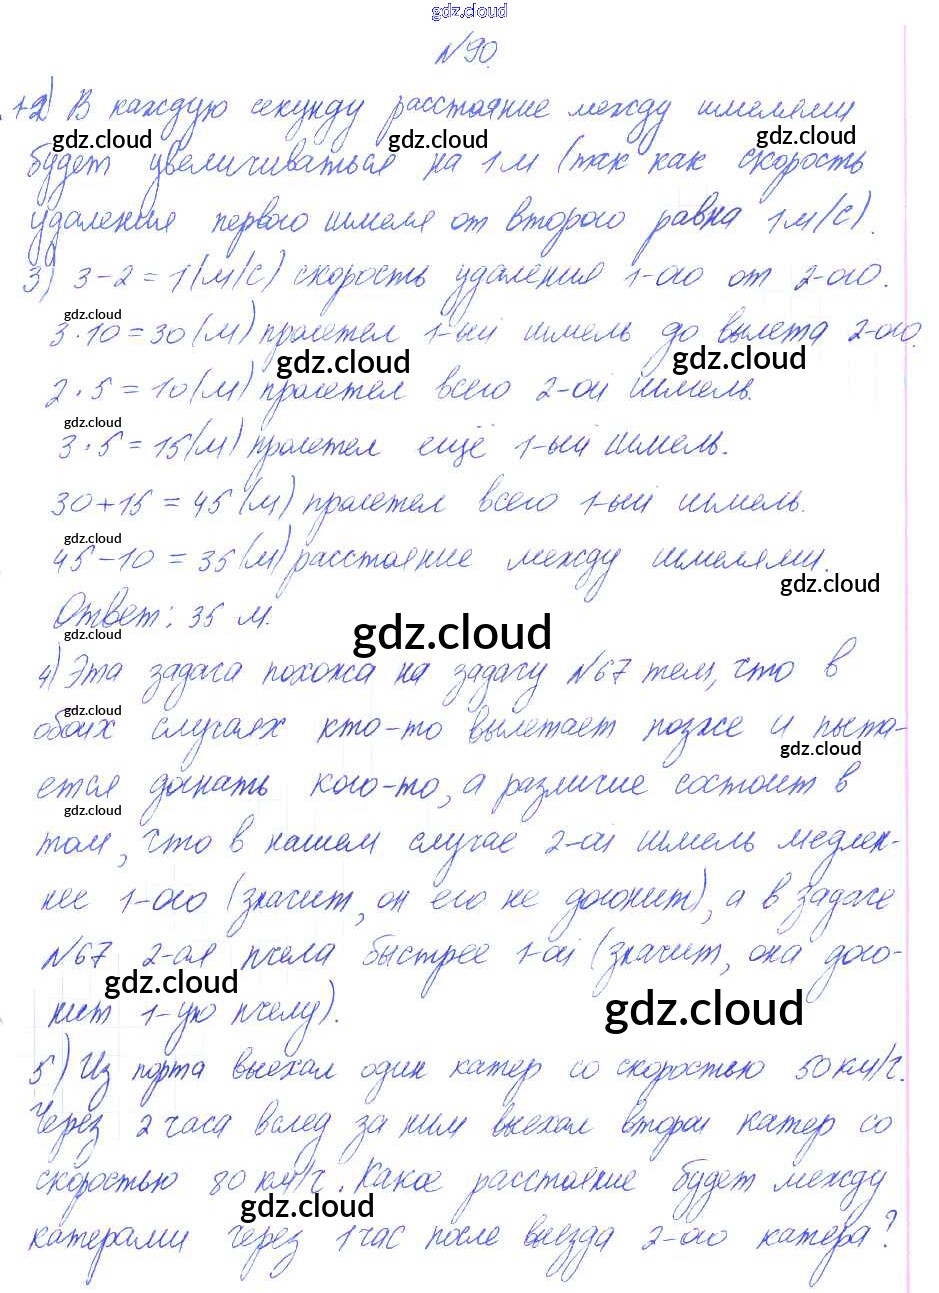 gdz.cloud
№90.
1-2) В каждую секунду расстояние между шмелями
gdz.cloud gdz.cloud gdz.cloud
будет увеличиваться на 1 м (так как скорость
удаления первого шмеля от второго равна 1 м/с).
3) 3-2=1(м/с) скорость удаления 1-ого от 2-ого.
gdz.cloud
3·10=30(м) пролетел 1-ый шмель до вылета 2-ого.
gdz.cloud gdz.cloud
2·5=10(м) пролетел всего 2-ой шмель.
gdz.cloud
3·5=15(м) пролетел ещё 1-ый шмель.
30+15=45(м) пролетел всего 1-ый шмель.
gdz.cloud
45-10=35(м) расстояние между шмелями.
gdz.cloud
Ответ: 35 м.
gdz.cloud gdz.cloud
4) Эта задача похожа на задачу №67 тем, что в
gdz.cloud
обоих случаях кто-то вылетает позже и пыта-
gdz.cloud
ется догнать кого-то, а различие состоит в
gdz.cloud
том, что в нашем случае 2-ой шмель медлен-
нее 1-ого (значит, он его не догонит), а в задаче
№67 2-ая пчела быстрее 1-ой (значит, она дого-
gdz.cloud gdz.cloud
нит 1-ую пчелу).
5) Из порта выехал один катер со скоростью 50 км/ч.
Через 2 часа вслед за ним выехал второй катер со
скоростью 80 км/ч. Какое расстояние будет между
gdz.cloud
катерами через 1 час после выезда 2-ого катера?